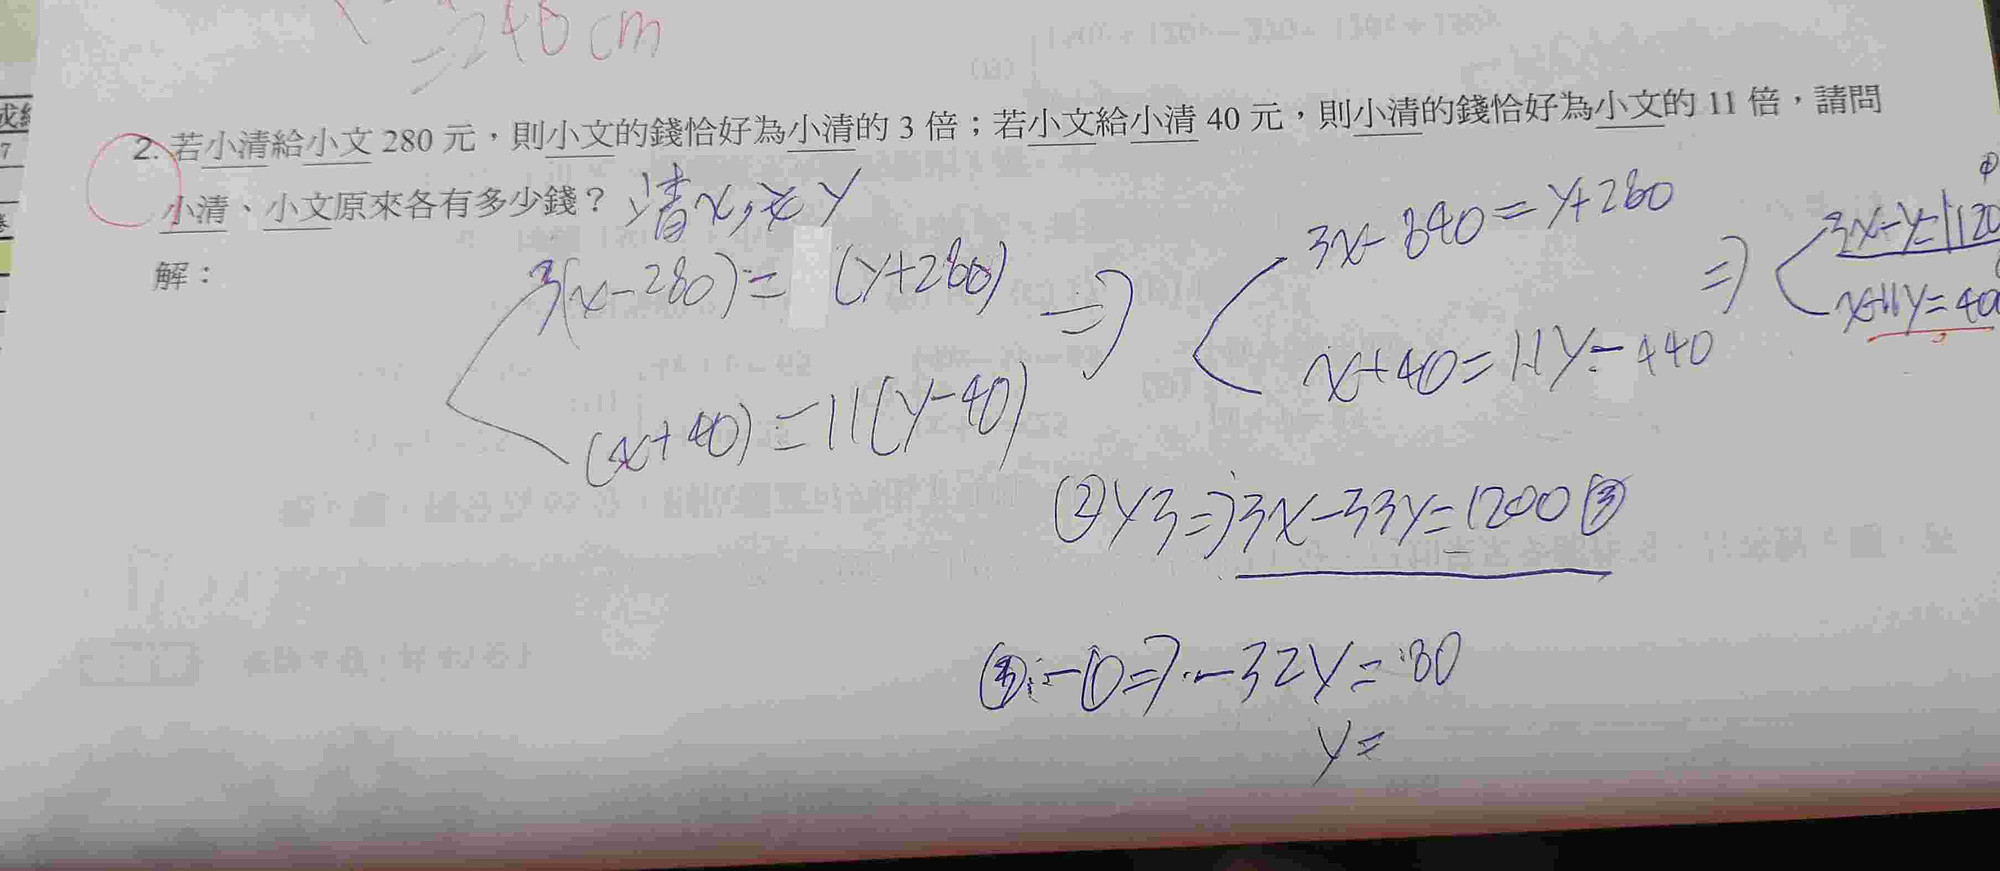 =240cm
2. 若小清給小文 280 元，則小文的錢恰好為小清的 3 倍；若小文給小清 40 元，則小清的錢恰好為小文的 11 倍，請問
小清、小文原來各有多少錢？ 清x，文y
解：
3(x-280)= (y+280) ⇒ 3x-840=y+280 ⇒ 3x-y=1120 ①
(x+40)=11(y-40) x+40=11y-440 x-11y=400
②×3⇒3x-33y=1200 ③
③-①⇒-32y=80
y=